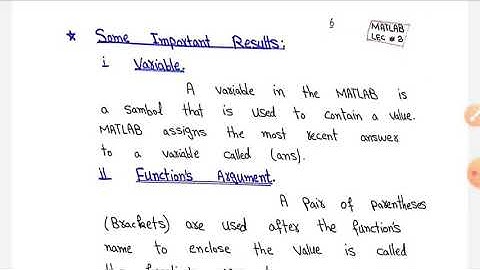 6
MATLAB
LEC # 3
* Some Important Results:
i Variable.
A variable in the MATLAB is
a sambol that is used to contain a value.
MATLAB assigns the most recent answer
to a variable called (ans).
ii Function's Argument.
A Pair of parentheses
(Brackets) are used after the function's
name to enclose the value is called
the function's